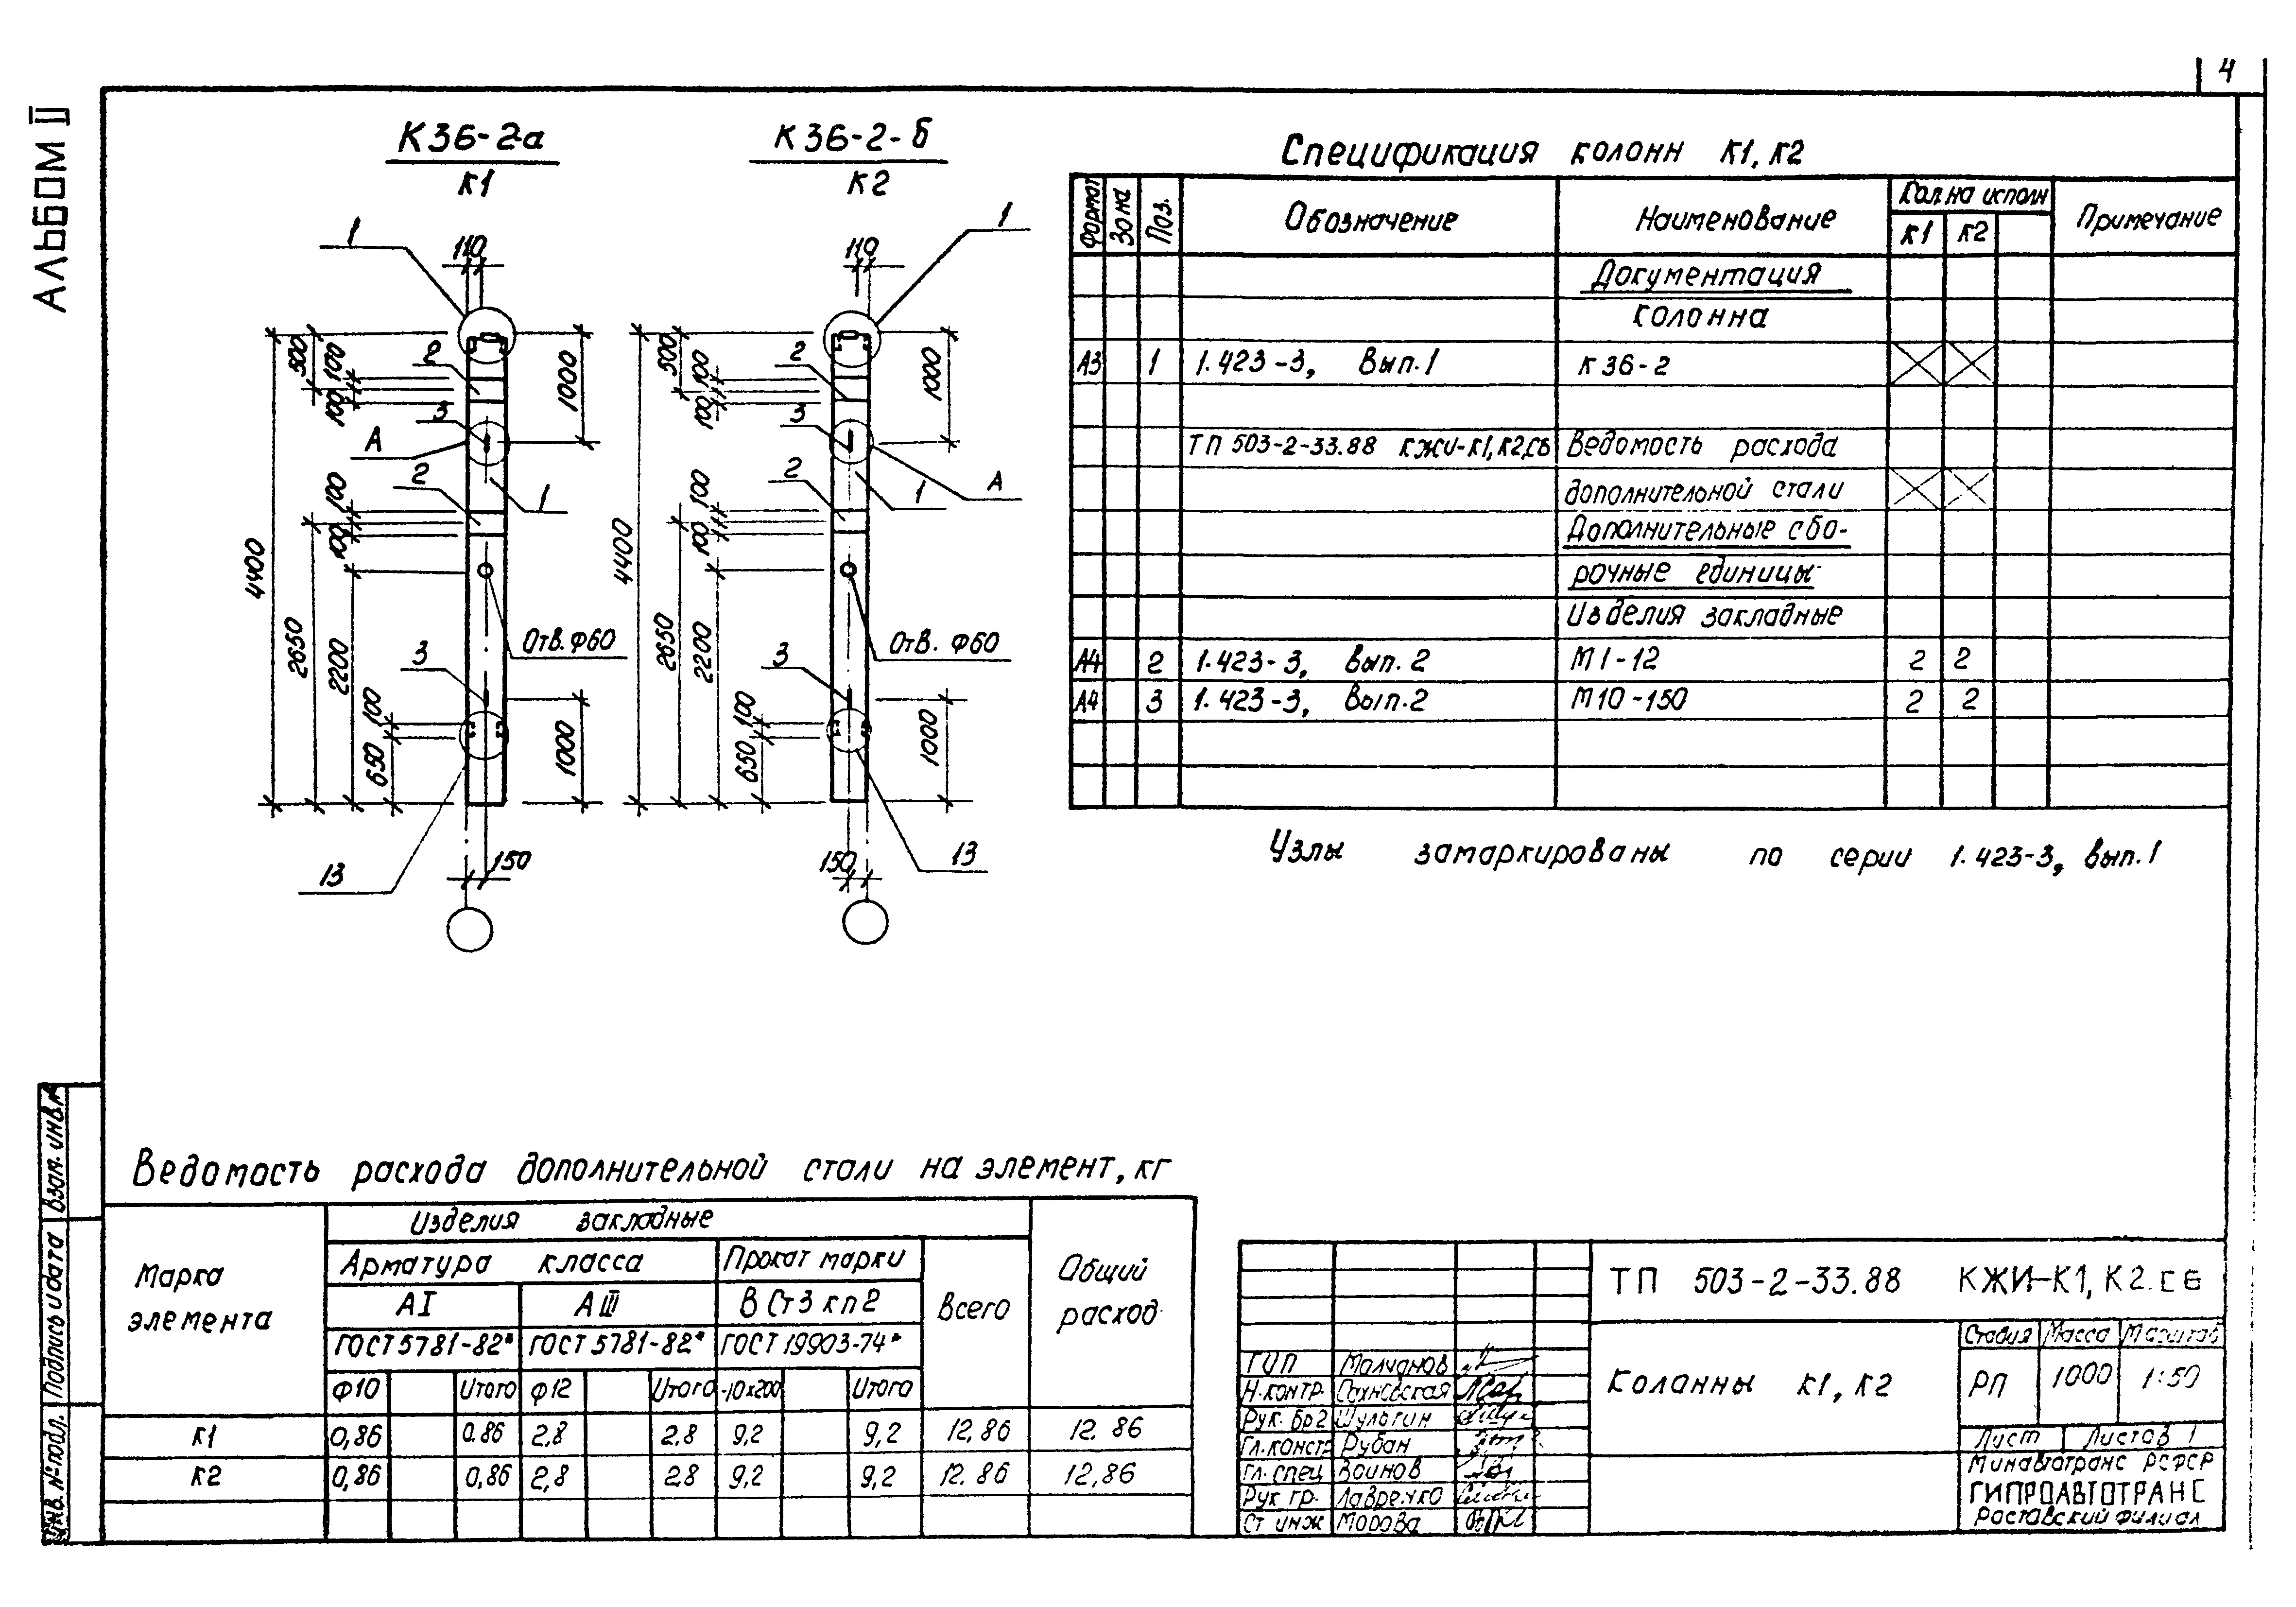 4
АЛЬБОМ III
К36-2-а
К1
К36-2-б
К2
1
110
500
100
100
1000
2
3
А
2
1
100
100
4400
2650
2200
Отв. Ф60
3
100
650
1000
13
150
1
110
500
100
100
1000
2
3
А
2
1
100
100
4400
2650
2200
Отв. Ф60
3
100
650
1000
13
150
Спецификация колонн К1, К2
Формат Зона Поз. Обозначение Наименование Кол на исполн Примечание
К1 К2
Документация
Колонна
А3 1 1.423-3, Вып.1 К36-2
ТП 503-2-33.88 КЖИ-К1,К2,СБ Ведомость расхода
дополнительной стали
Дополнительные сбо-
рочные единицы
Изделия закладные
А4 2 1.423-3, Вып.2 М1-12 2 2
А4 3 1.423-3, Вып.2 М10-150 2 2
Узлы замаркированы по серии 1.423-3, вып.1
Ведомость расхода дополнительной стали на элемент, кг
Марка элемента Изделия закладные Общий расход
Арматура класса Прокат марки Всего
АI АIII ВСт3кп2
ГОСТ 5781-82* ГОСТ 5781-82* ГОСТ 19903-74*
Ф10 Итого Ф12 Итого -10х200 Итого
К1 0,86 0.86 2,8 2,8 9,2 9,2 12,86 12.86
К2 0,86 0,86 2,8 2,8 9,2 9,2 12.86 12,86
ТП 503-2-33.88 КЖИ-К1, К2.СБ
Колонны К1, К2
Стадия Масса Масштаб
РП 1000 1:50
Лист Листов 1
Минавтотранс РСФСР
ГИПРОАВТОТРАНС
Ростовский филиал
ГИП Молчанов
Н.контр. Сахновская
Рук. бр2 Шульгин
Гл.констр Рубан
Гл. спец Воинов
Рук гр. Лавренко
Ст инж Морова
Инв. № подл. Подпись и дата Взам. инв. №